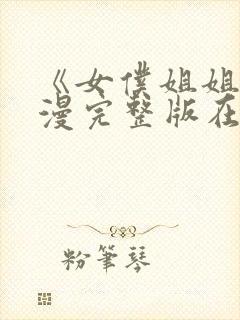 《女僕姐姐
漫完整版在
粉筆琴